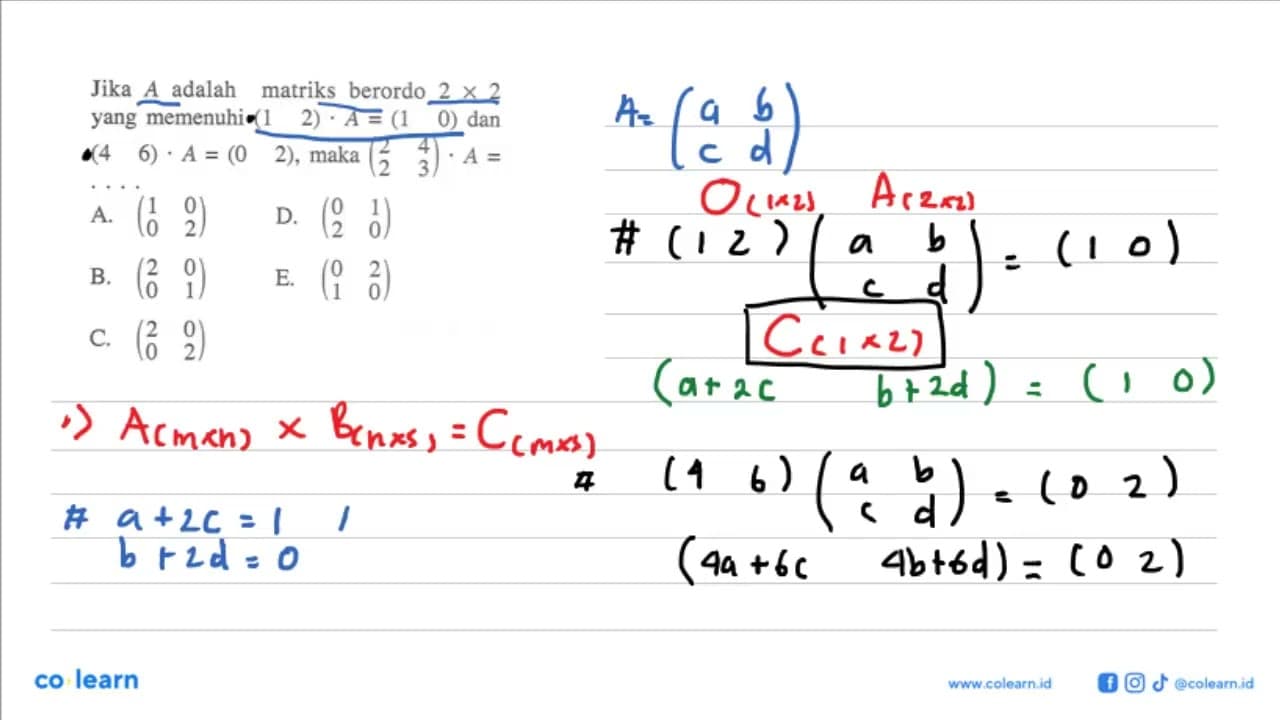 Jika A adalah matriks berordo 2 × 2
yang memenuhi (1 2) · A = (1 0) dan
(4 6) · A = (0 2), maka (2 4
2 3) · A =
. . . .
A. (1 0
0 2)
B. (2 0
0 1)
C. (2 0
0 2)
D. (0 1
2 0)
E. (0 2
1 0)
A = (a b
c d)
O(1×2) A(2×2)
# (1 2) (a b
c d) = (1 0)
C(1×2)
(a+2c b+2d) = (1 0)
A(m×n) × B(n×s) = C(m×s)
# (4 6) (a b
c d) = (0 2)
(4a+6c 4b+6d) = (0 2)
# a+2c = 1
b+2d = 0
co learn
www.colearn.id
@colearn.id